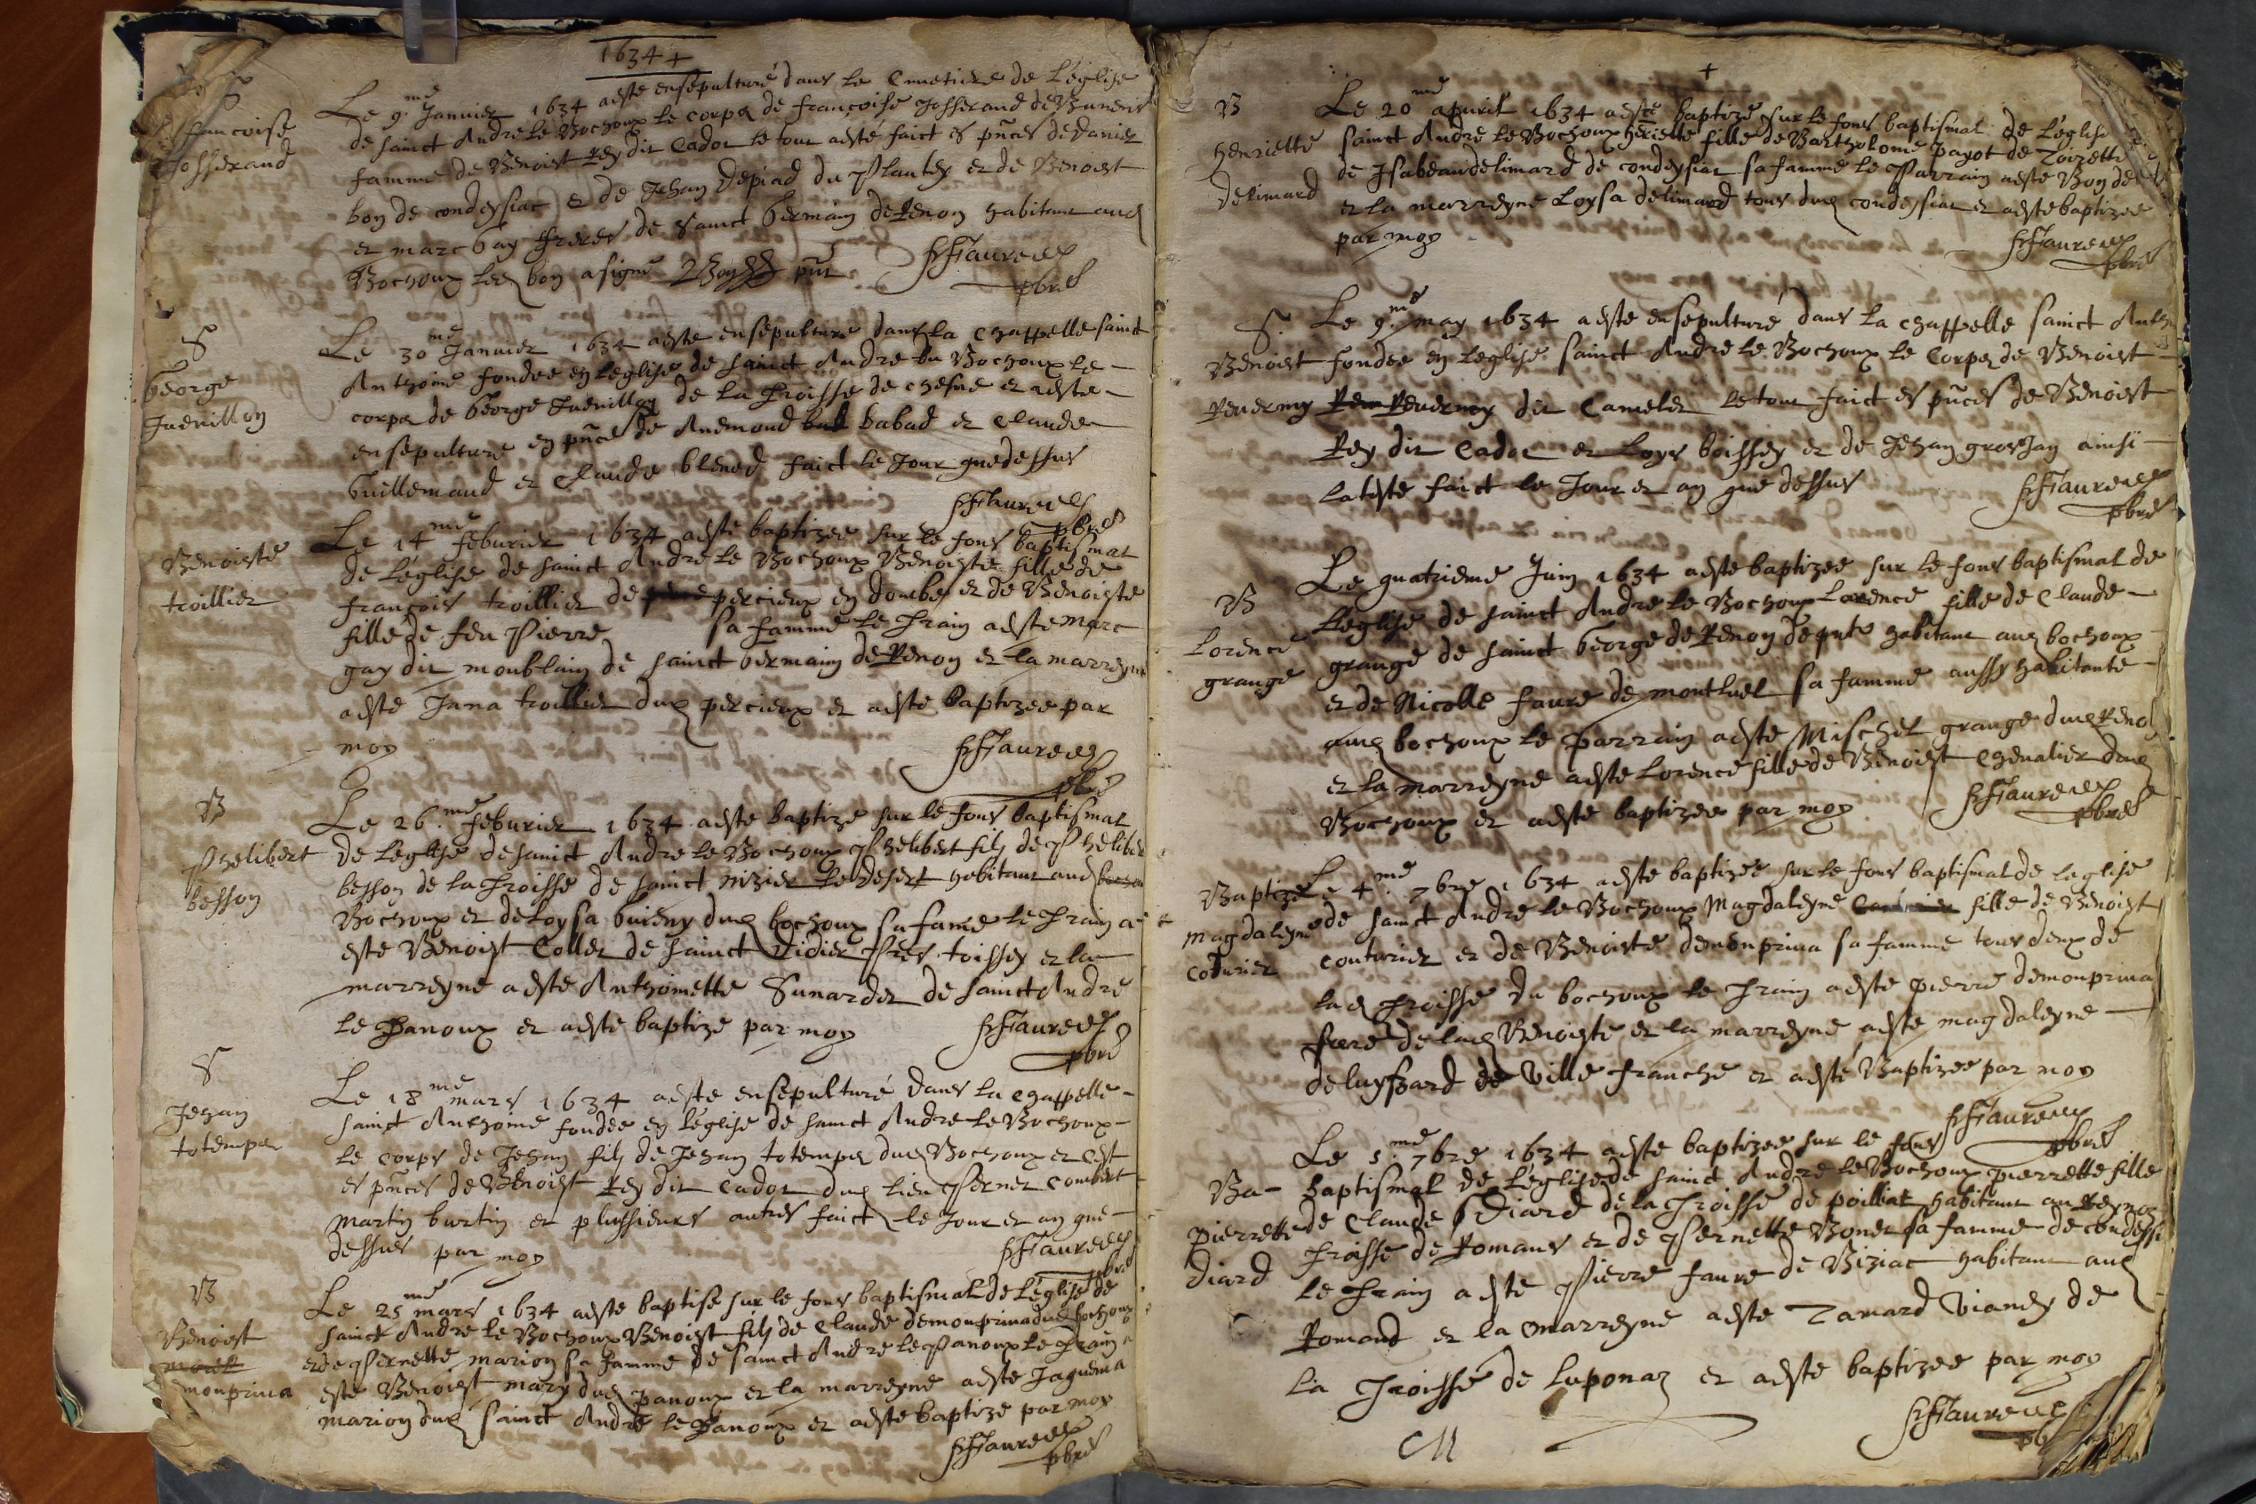 1634 +
S
francoise
Josserand
Le 9.me Januier 1634 aeste ensepulturé dans le Cimetiere de L'église
de sainct Andre le Bochoux le corps de francoise Josserand de
famme de Benoist Rey dit Cador le tout aesté faict es pñces de Daniel
bon de condeyssiac et de Jehan Depiad du Plantey et de Benoist
et marc Gay freres de Sainct Germain de Renon habitant aud
Bochoux led bon a signe Bon pñt
fFaure
pbre
S
George
Juenillon
Le 30 me Januier 1634 aeste ensepulture dans la Chappelle sainct
Anthoine fondee en leglise de sainct Andre du Bochoux le
corps de George Juenillon de la Proisse de Chesne et aeste
ensepulture en pñce de Anemond babad et Claude
Guillemaud et Claude blened faict le Jour que dessus
fFaure
pbre
Benoiste
troillier
Le 14 me feburier 1634 aeste baptizee sur le fons baptismal
de L'église de sainct Andre le Bochoux Benoiste fille de
françois troillier de percieux en dombes et de Benoiste
fille de feu Pierre sa famme le Prain aeste marc
gay dit monblain de sainct Germain de Renon et la marreyne
aeste Jana troillier dud percieux et aeste baptizee par
moy
fFaure
pbre
B
Phelibert
besson
Le 26.me feburier 1634 aeste baptize sur le fons baptismal
de L'eglise de sainct Andre le Bochoux Phelibert filz de Phelibert
besson de la Proisse de sainct nizier le desert habitant aud
Bochoux et de Loysa Guieny dud bochoux sa fame le Prain a
este Benoist Collet de sainct Didier Pres toissey et la
marreyne aeste Anthoinette Sunardet de sainct Andre
le Panoux et aeste baptize par moy
fFaure
pbre
S
Jehan
totemps
Le 18 me mars 1634 aeste ensepulturé dans la Chappelle
sainct Anthoine fondee en L'église de sainct Andre le Bochoux
le corps de Jehan filz de Jehan totemps dud Bochoux et cest
es pñces de Benoist Rey dit Cador dud lieu Pernet Combet
Martin burtin et plussieurs autres faict le Jour et an que
dessus par moy
fFaure
pbre
B
Benoist
monprina
Le 25 me mars 1634 aeste baptise sur le fons baptismal de L'église de
sainct Andre le Bochoux Benoist filz de Claude demonprina dud bochoux
et de Pernette marion sa famme de sainct Andre le Panoux le Prain a
este Benoist mary dud panoux et la marreyne aeste Jaquema
marion dud sainct André le Panoux et aeste baptize par moy
fFaure
pbre
+
B
Henriette
delimard
Le 20 me apuril 1634 aesté baptizé sur le fons baptismal de L'eglise
sainct Andre le Bochoux Heriette fille de Bartholome payot de
de Isabeau delimard de condeysiat sa famme le Parrain aeste Bon de
et la marreyne Loysa delimard tous dud condeysiat et aeste baptizee
par moy
fFaure
pbre
S.
Benoist
Reuermy
Le 9.me may 1634 aeste ensepulturé dans la chappelle sainct
fondee en Leglise sainct Andre le Bochoux le Corps de Benoist
Reuermy dit Camelet le tout faict es pñces de Benoist
Rey dit Cador et Loys boissey et de Jehan grosJan ainsi
la teste faict le Jour et an que dessus
fFaure
pbre
B
Lorence
grange
Le quatrieme Juin 1634 aeste baptizee sur le fons baptismal de
L'eglise de sainct Andre le Bochoux Lorence fille de Claude
grange de sainct George de Renon habitant aud bochoux
et de Nicolle faure de montluel sa famme aussy habitante
aud bochoux le parrain aeste Mischel grange dud
et la marreyne aeste Lorence fille de Benoist Cheualier dud
Bochoux et aeste baptizee par moy
fFaure
pbre
Baptize
magdaleyne
Coturier
Le 4.me 7bre 1634 aeste baptizee sur le fons baptismal de leglise
de sainct Andre le Bochoux Magdaleyne fille de Benoist
couturier et de Benoiste demonprina sa famme tous deux de
lad Proisse du bochoux le Prain aeste pierre demonprina
frere de lad Benoiste et la marreyne aeste magdaleyne
de Ville franche et aesté Baptizee par moy
fFaure
pbre
Ba-
pierrette
Diard
Le 5.me 7bre 1634 aeste baptizee sur le fons
baptismal de L'eglise de sainct Andre le Bochoux pierrette fille
de Claude Diard de la Proisse de poilliat habitant au
Proisse de Romans et de Pernette Bonet sa famme de
le Prain aeste Pierre faure de Biziac habitant aud
Romand et la marreyne aeste Viandy de
la Proisse de Luponaz et aeste baptizee par moy
fFaure